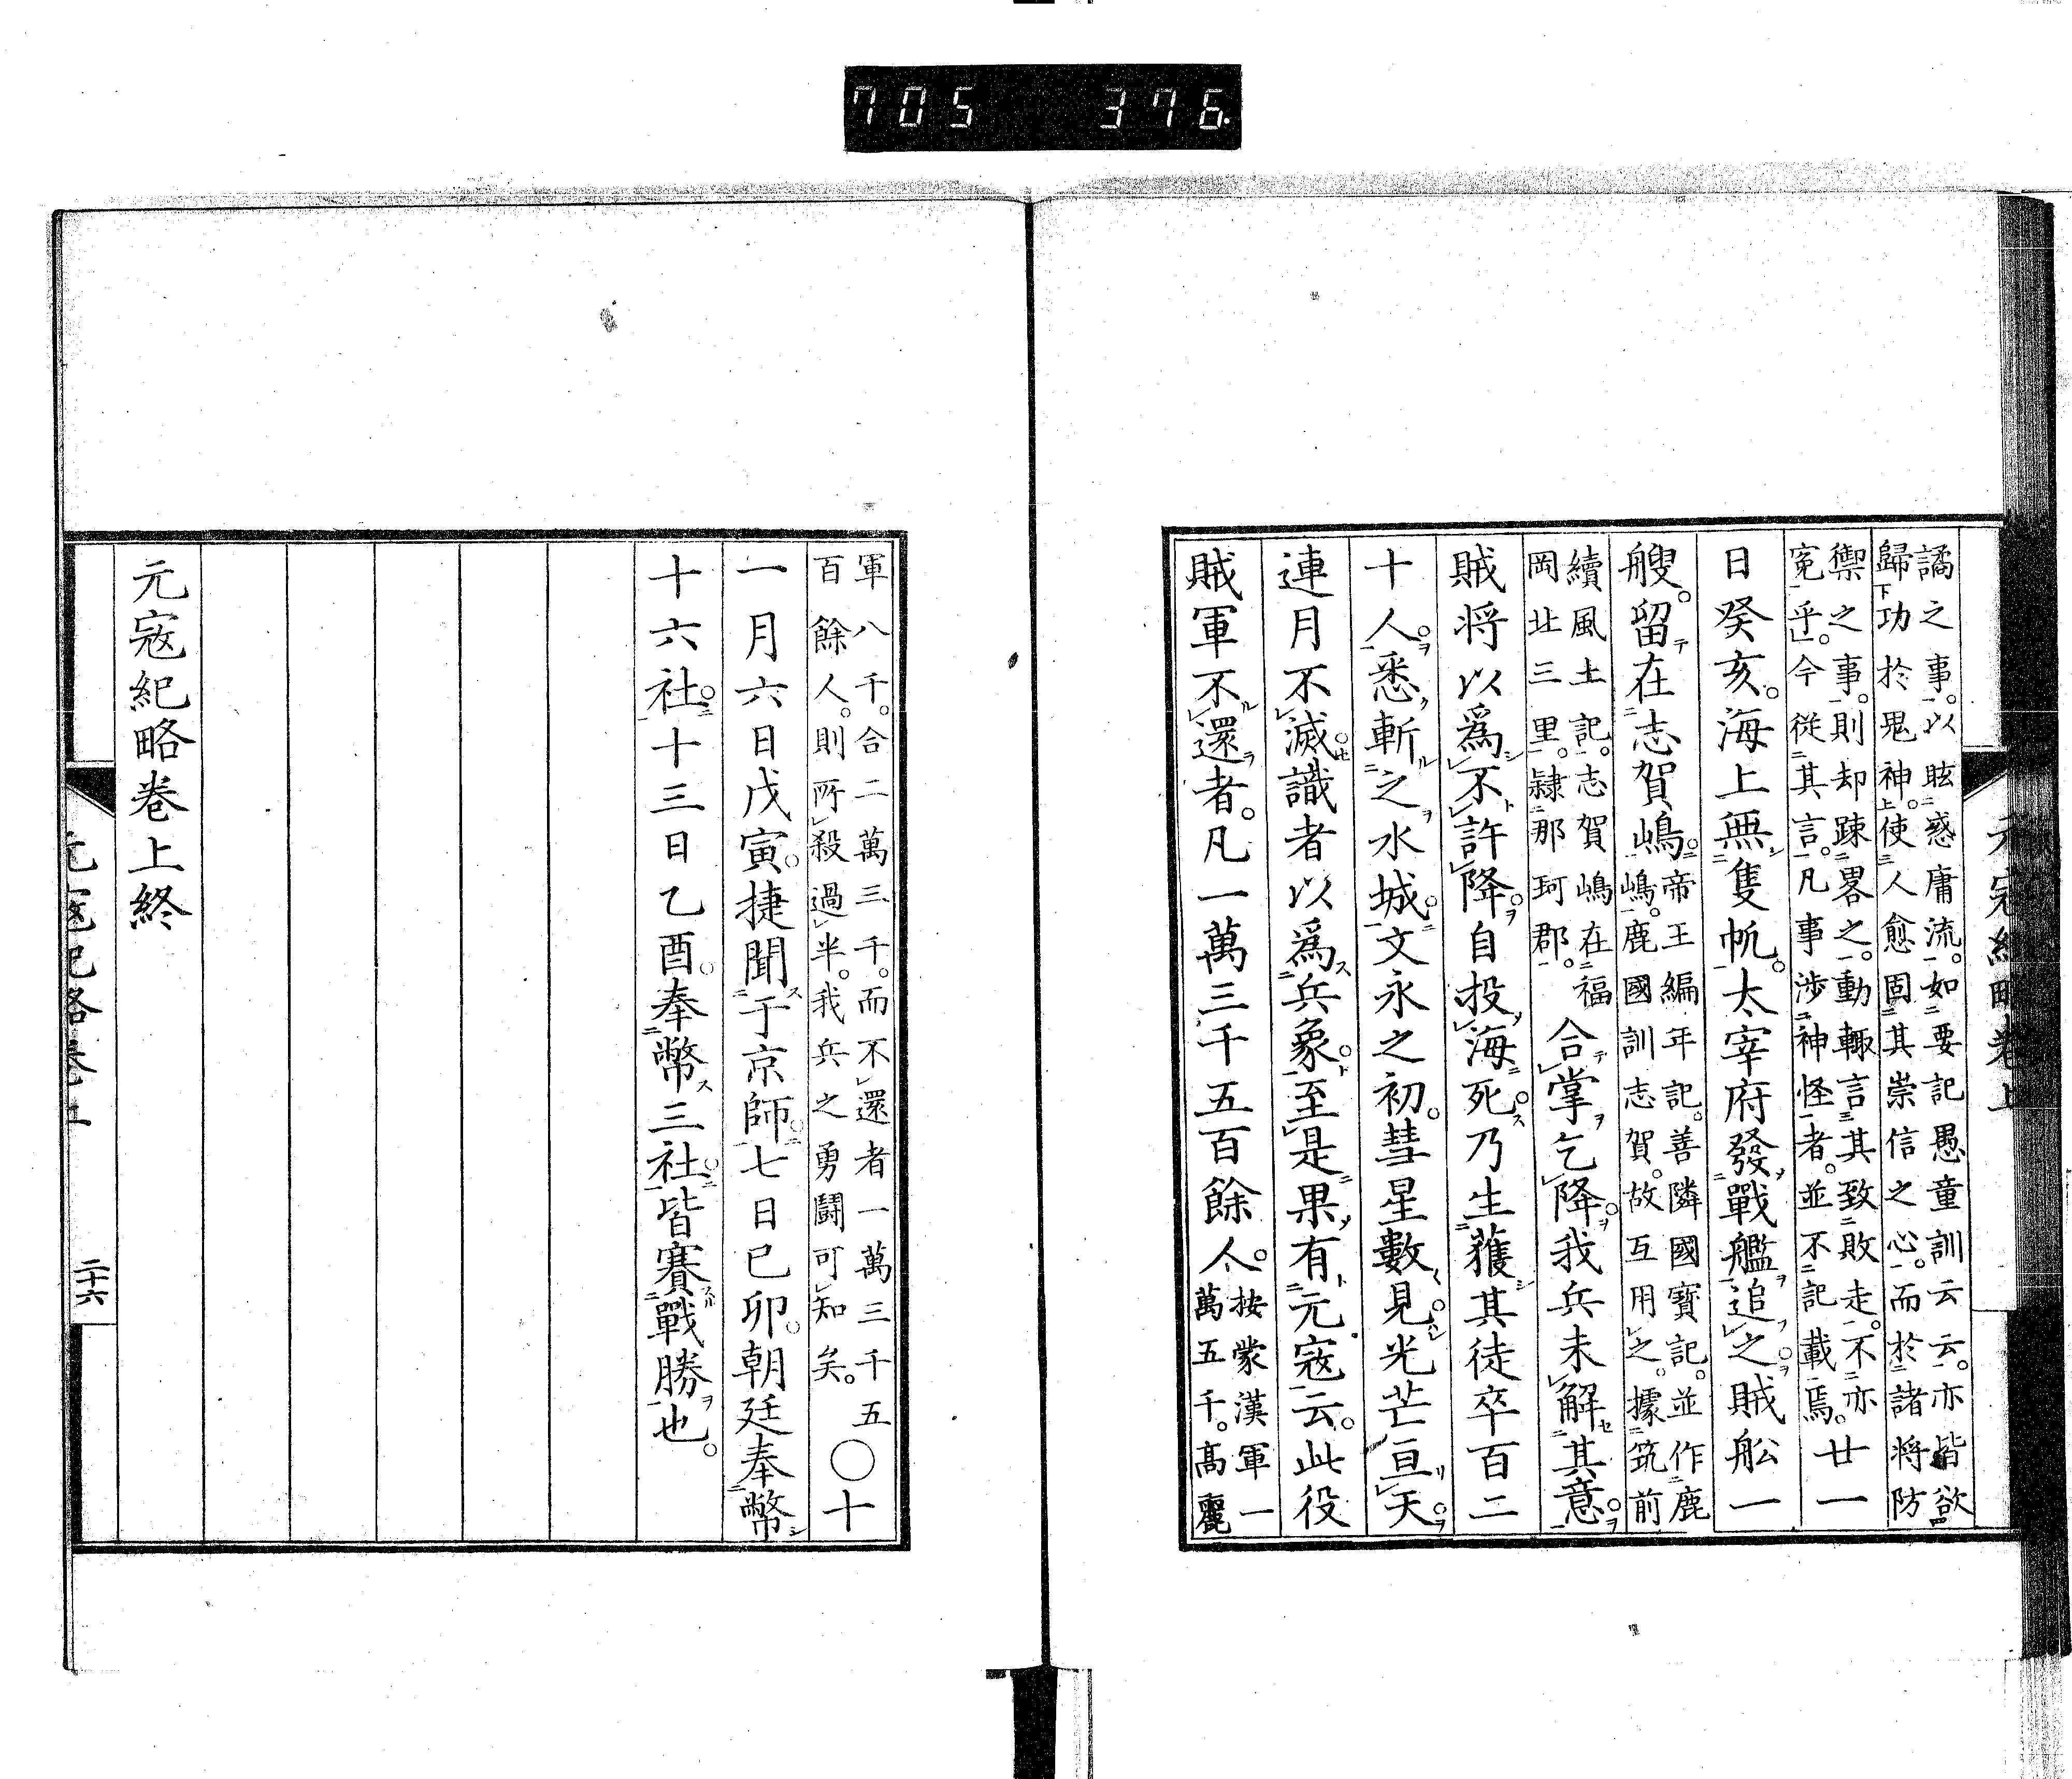 705 376
元寇紀略卷上
譎之事。以眩惑庸流。如要記愚童訓云云。亦皆欲
歸功於鬼神。使人愈固其崇信之心。而於諸將防
禦之事。則却踈畧之。動輙言其致敗走。不亦
寃乎。今從其言。凡事涉神怪者。並不記載焉。廿一
日癸亥。海上無隻帆。太宰府發戰艦追之。賊舩一
艘。留在志賀嶋。帝王編年記。善隣國寶記。並作鹿
嶋。鹿國訓志賀。故互用之。據筑前
續風土記。志賀嶋在福
岡北三里。隷那珂郡。合掌乞降。我兵未解其意。
賊将以爲不許降。自投海死。乃生獲其徒卒百二
十人。悉斬之水城。文永之初。彗星數見。光芒亘天。
連月不滅。識者以爲兵象。至是果有元寇云。此役
賊軍不還者。凡一萬三千五百餘人。按蒙漢軍一
萬五千。髙麗
軍八千。合二萬三千。而不還者一萬三千五
百餘人。則所殺過半。我兵之勇鬪可知矣。〇十
一月六日戊寅。捷聞于京師。七日已卯。朝廷奉幣
十六社。十三日乙酉。奉幣三社。皆賽戰勝也。
元寇紀略卷上終
元寇紀略卷上
二十六